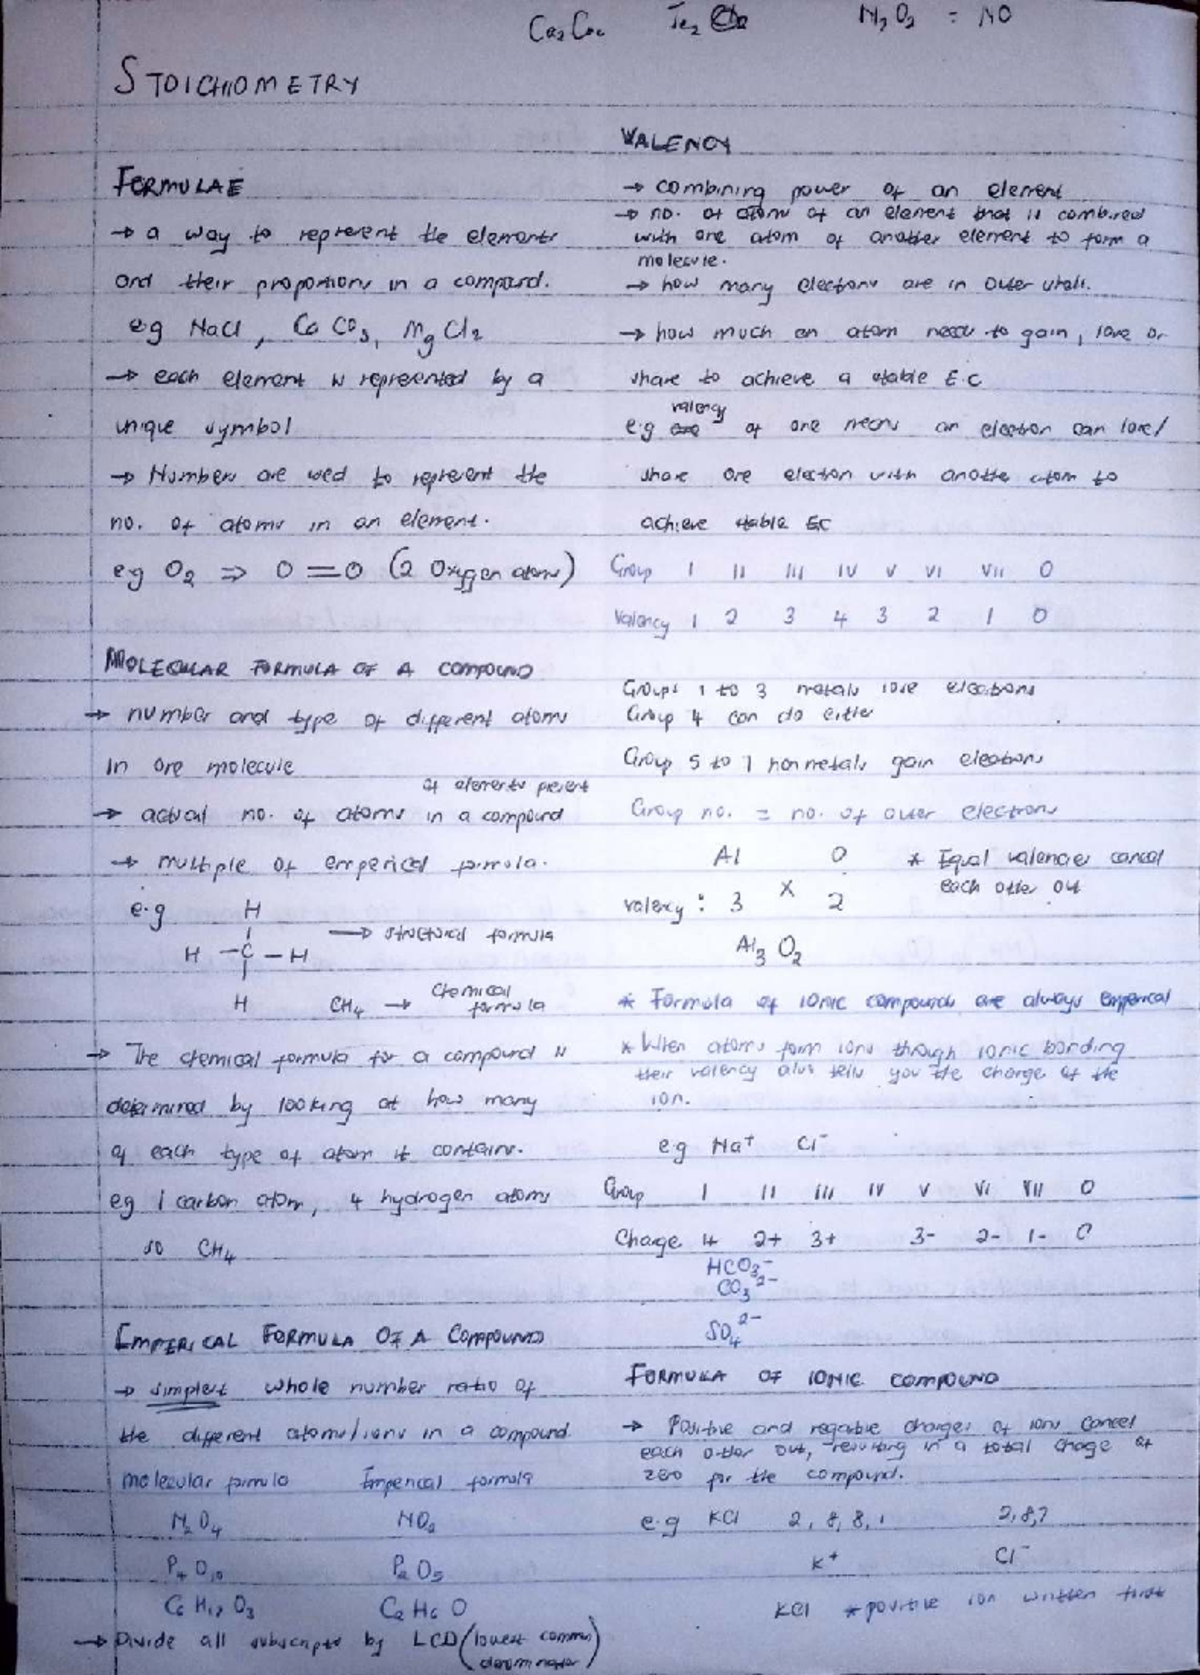 N2O2 = NO
STOICHIOMETRY
FORMULAE
→ a way to represent the elements
and their proportions in a compound.
eg NaCl, CaCO3, MgCl2
→ each element is represented by a
unique symbol
→ Numbers are used to represent the
no. of atoms in an element.
eg O2 ⇒ O=O (2 Oxygen atoms)
MOLECULAR FORMULA OF A COMPOUND
→ number and type of different atoms
in one molecule
of elements present
→ actual no. of atoms in a compound
→ multiple of emperical formula.
e.g H
H - C - H → structural formula
H
CH4 → chemical formula
→ The chemical formula for a compound is
determined by looking at how many
of each type of atom it contains.
eg 1 carbon atom, 4 hydrogen atoms
so CH4
EMPERICAL FORMULA OF A COMPOUND
→ simplest whole number ratio of
the different atoms/ions in a compound.
molecular formula Emperical formula
N2O4 NO2
P4O10 P2O5
C6H12O3 C2H6O
→ Divide all subscripts by LCD (lowest common
denominator)
VALENCY
→ combining power of an element
→ no. of atoms of an element that is combined
with one atom of another element to form a
molecule.
→ how many electrons are in outer shell.
→ how much an atom needs to gain, lose or
share to achieve a stable E.C
valency
e.g of one means an electron can lose/
share one electron with another atom to
achieve stable EC
Group I II III IV V VI VII 0
Valency 1 2 3 4 3 2 1 0
Groups 1 to 3 metals lose electrons
Group 4 can do either
Group 5 to 7 nonmetals gain electrons
Group no. = no. of outer electrons
Al O * Equal valencies cancel
each other out
valency : 3 X 2
Al3 O2
* Formula of ionic compounds are always emperical
* When atoms form ions through ionic bonding
their valency also tells you the charge of the
ion.
eg Na+ Cl-
Group I II III IV V VI VII 0
Charge 1+ 2+ 3+ 3- 2- 1- 0
HCO3-
CO3 2-
SO4 2-
FORMULA OF IONIC COMPOUND
→ Positive and negative charges of ions cancel
each other out, resulting in a total charge of
zero for the compound.
e.g KCl 2,8,8,1 2,8,7
K+ Cl-
KCl * positive ion written first